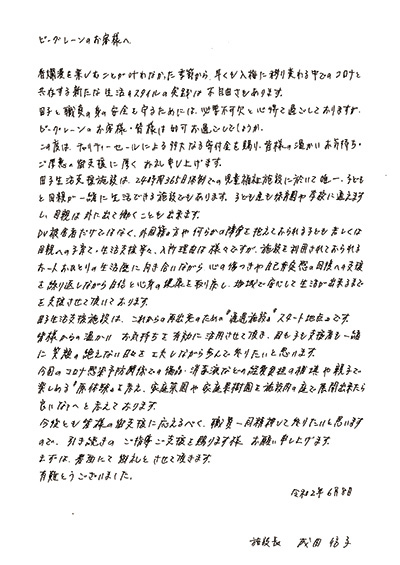 ピーグレーンのお客様へ
春爛漫を楽しむことが叶わなかった季節から、早くも入梅に移り変わる中でのコロナと
共存する新たな生活のスタイルの実践は不自由でもあります。
母子と職員の身の安全を守るためには、必要不可欠と心得て過ごしておりますが、
ピーグレーンのお客様・皆様は如何お過ごしでしょうか。
この度は、チャリティーセールによる多大なる寄付金を賜り、皆様の温かいお気持ち・
ご厚意の御支援に厚くお礼申し上げます。
母子生活支援施設は、24時間365日体制での児童福祉施設に於いて唯一、子ども
と母親が一緒に生活できる施設でもあります。子ども達も保育園や学校に通えます
し、母親は外に出て働くことも出来ます。
DV被害者だけではなく、外国籍の方や何らかの障害を抱えておられる子ども若しくは
母親への子育て・生活支援等々、入所理由は様々ですが、施設を利用されておられる
お一人おひとりの生活歴に向き合いながら心の傷つきや自己肯定感の回復への支援
を繰り返しながら自信と心身の健康を取り戻し、地域で安心して生活が出来るまで
を支援させて頂いております。
母子生活支援施設は、これからの再出発のための"通過施設"スタート地点です。
皆様からの温かいお気持ちを有効に活用させて頂き、母も子も支援者も一緒
に笑顔の絶えない日々を工夫しながら歩んで参りたいと思います。
今回のコロナ感染予防関係での備品・消毒液などの経費負担の補填や親子で
楽しめる"原体験"を考え、家庭菜園や家庭果樹園を施設内の庭で展開出来たら
良いなぁと考えております。
今後とも皆様の御支援に応えるべく、職員一同精押して参りたいと思います
ので、引き続きのご指導ご支援を賜ります様、お願い申し上げます。
まずは、書面にて御礼とさせて頂きます。
有難とうございました。
令和2年6月8日
施設長